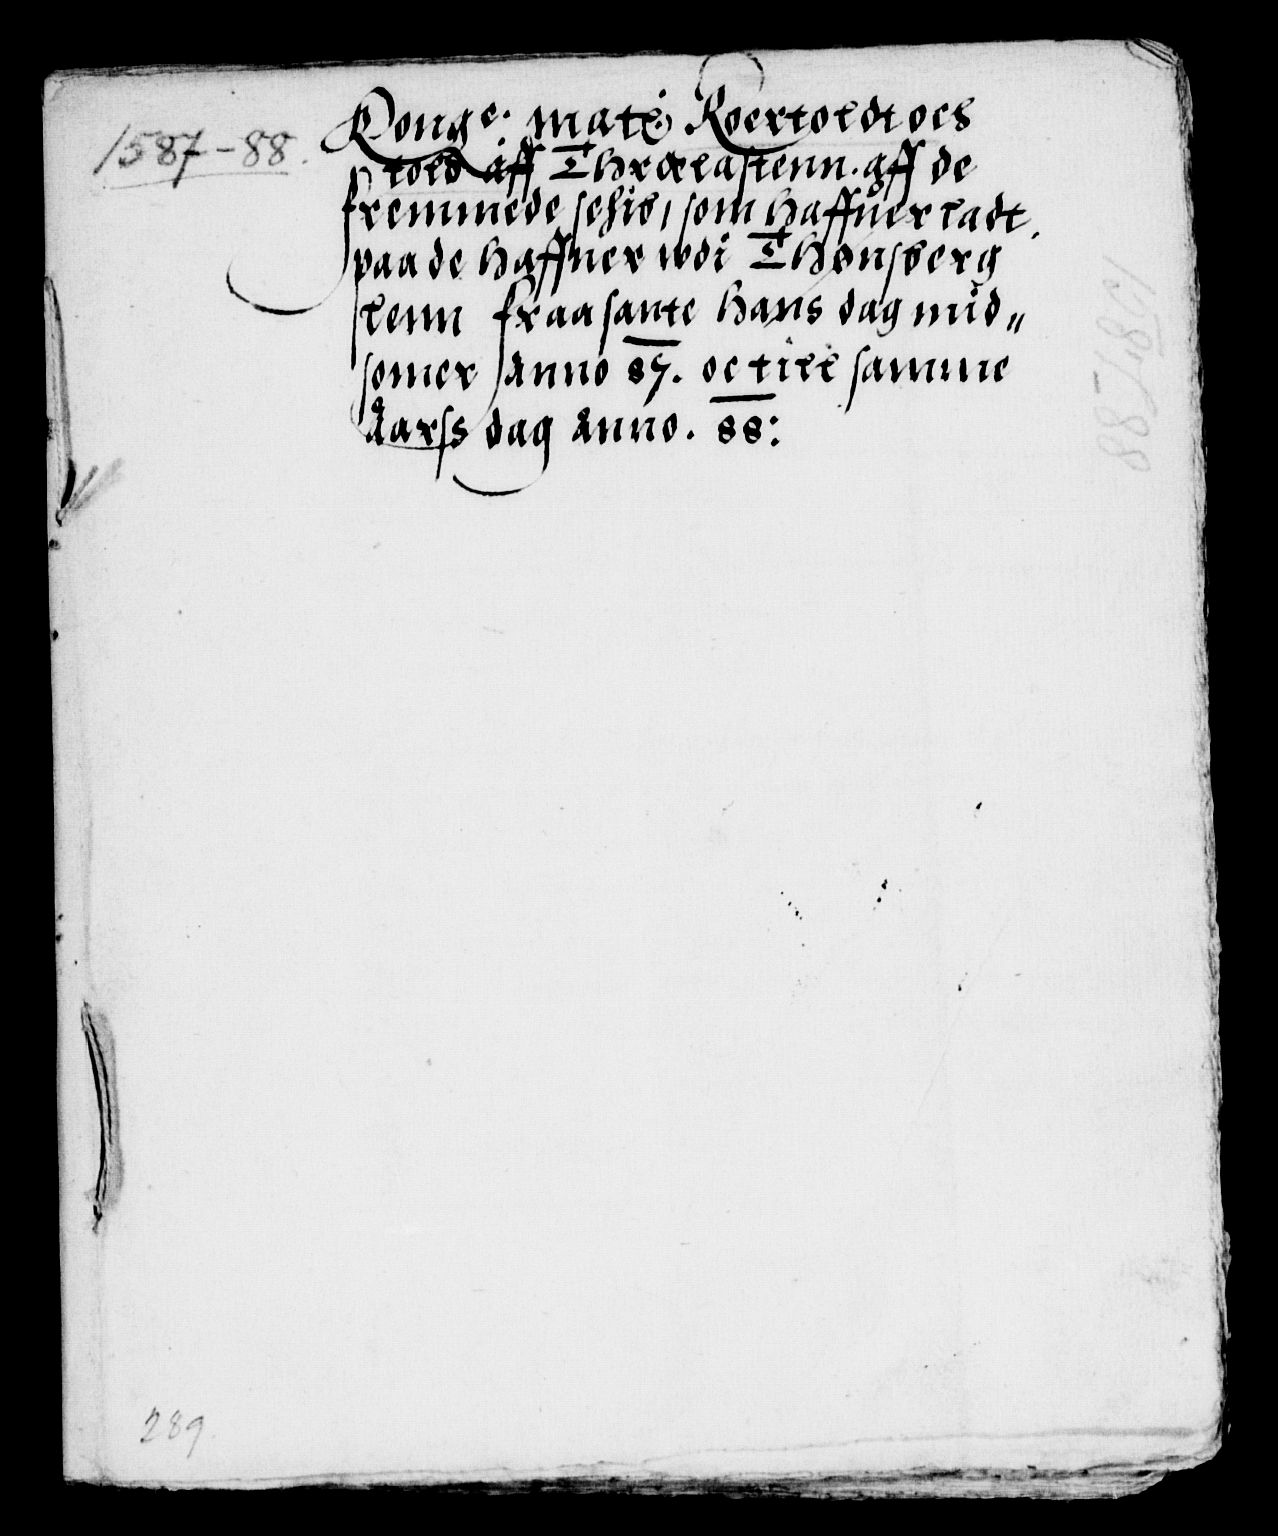 1587-88.
Konge: matz Roertoldt och
told aff Thrælastenn. aff de
fremmede schib, som haffuer ladt
paa de haffner wdi Thønsberg
lenn fraa sancte Hans dag mid„
somer Anno 87. oc till samme
Aarss dag Anno. 88:
289.